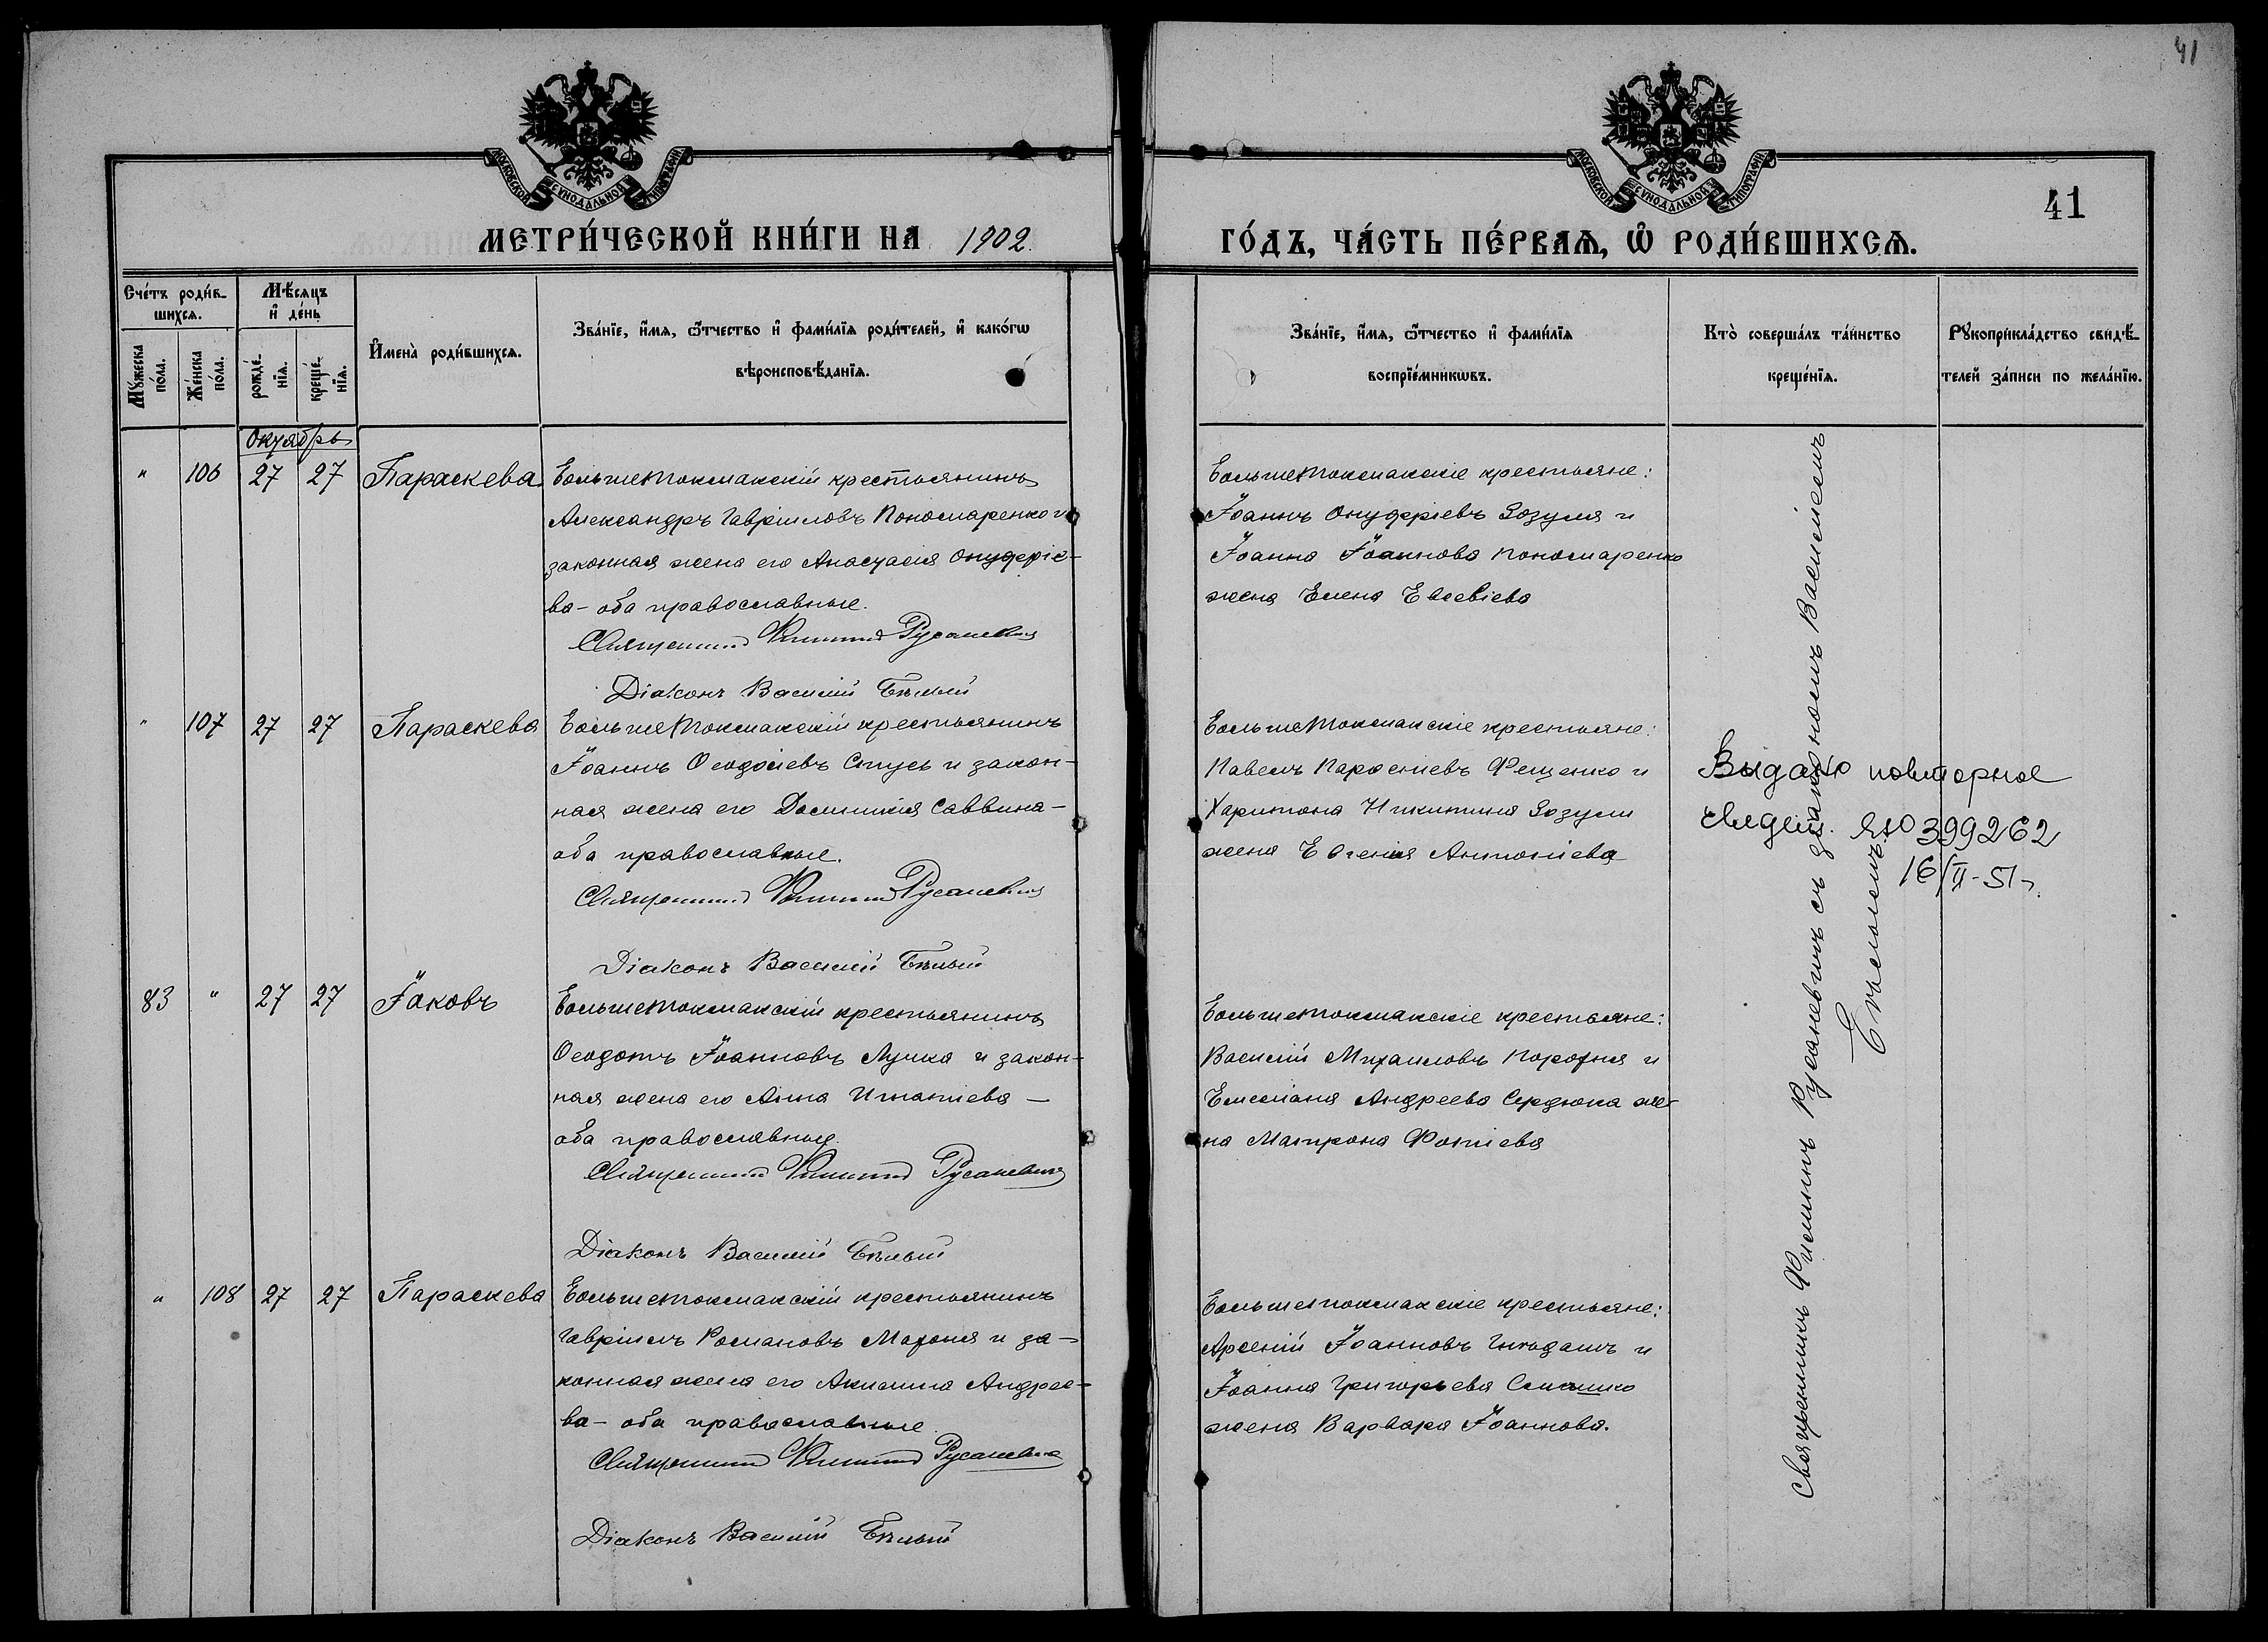 41
МОСКОВСКОЙ СѴНОДАЛЬНОЙ ТИПОГРАФІИ
МОСКОВСКОЙ СѴНОДАЛЬНОЙ ТИПОГРАФІИ
41
МЕТРИ́ЧЕСКОЙ КНИ́ГИ НА 1902.
ГО́ДЪ, ЧА́СТЬ ПЕ́РВАѦ, Ѡ҆ РОДИ́ВШИХСѦ.
Сче́тъ роди́в-
шихсѧ.
Мѣ́сѧцъ
и҆ де́нь
Мꙋ́жеска
по́ла.
Же́нска
по́ла.
рожде́-
нїѧ.
креще́-
нїѧ.
И҆мена̀ роди́вшихсѧ.
Зва́нїе, и҆́мѧ, ѻ҆́тчество и҆ фами́лїѧ роди́телей, и҆ како́гѡ
вѣроисповѣ́данїѧ.
Зва́нїе, и҆́мѧ, ѻ҆́тчество и҆ фами́лїѧ
воспрїе́мникѡвъ.
Кто̀ соверша́лъ та́инство
креще́нїѧ.
Рꙋкоприкла́дство свидѣ́-
телей за́писи по жела́нїю.
Октябрь
" 106 27 27 Параскева
Большетокмакскій крестьянинъ
Александръ Гавріиловъ Пономаренко и
законная жена его Анастасія Онуфріе-
ва - оба православные.
Священникъ Филиппъ Русаневичъ
Діаконъ Василій Бѣлый
Большетокмакскіе крестьяне:
Іоаннъ Онуфріевъ Зозуля и
Іоанна Іоаннова Пономаренко
жена Елена Евсевіева
" 107 27 27 Параскева
Большетокмакскій крестьянинъ
Іоаннъ Ѳеодосіевъ Стусь и закон-
ная жена его Домникія Саввина -
оба православные.
Священникъ Филиппъ Русаневичъ
Діаконъ Василій Бѣлый
Большетокмакскіе крестьяне:
Павелъ Парѳеніевъ Фещенко и
Харитона Никитина Зозули
жена Евгенія Антоніева
Видано повторное
свидет. ЯЮ 399262
16/II-51 г.
83 " 27 27 Іаковъ
Большетокмакскій крестьянинъ
Ѳеодотъ Іоанновъ Лучка и закон-
ная жена его Анна Игнатіева -
оба православные.
Священникъ Филиппъ Русаневичъ
Діаконъ Василій Бѣлый
Большетокмакскіе крестьяне:
Василій Михаиловъ Порохня и
Емеліана Андреева Сердюка же-
на Матрона Фотіева
" 108 27 27 Параскева
Большетокмакскій крестьянинъ
Гавріилъ Романовъ Махоня и за-
конная жена его Акилина Андрее-
ва - оба православные.
Священникъ Филиппъ Русаневичъ
Діаконъ Василій Бѣлый
Большетокмакскіе крестьяне:
Арсеній Іоанновъ и
Іоанна Григорьева
жена Варвара Іоаннова.
Священникъ Филиппъ Русаневичъ съ діакономъ Василіемъ
Бѣлымъ.